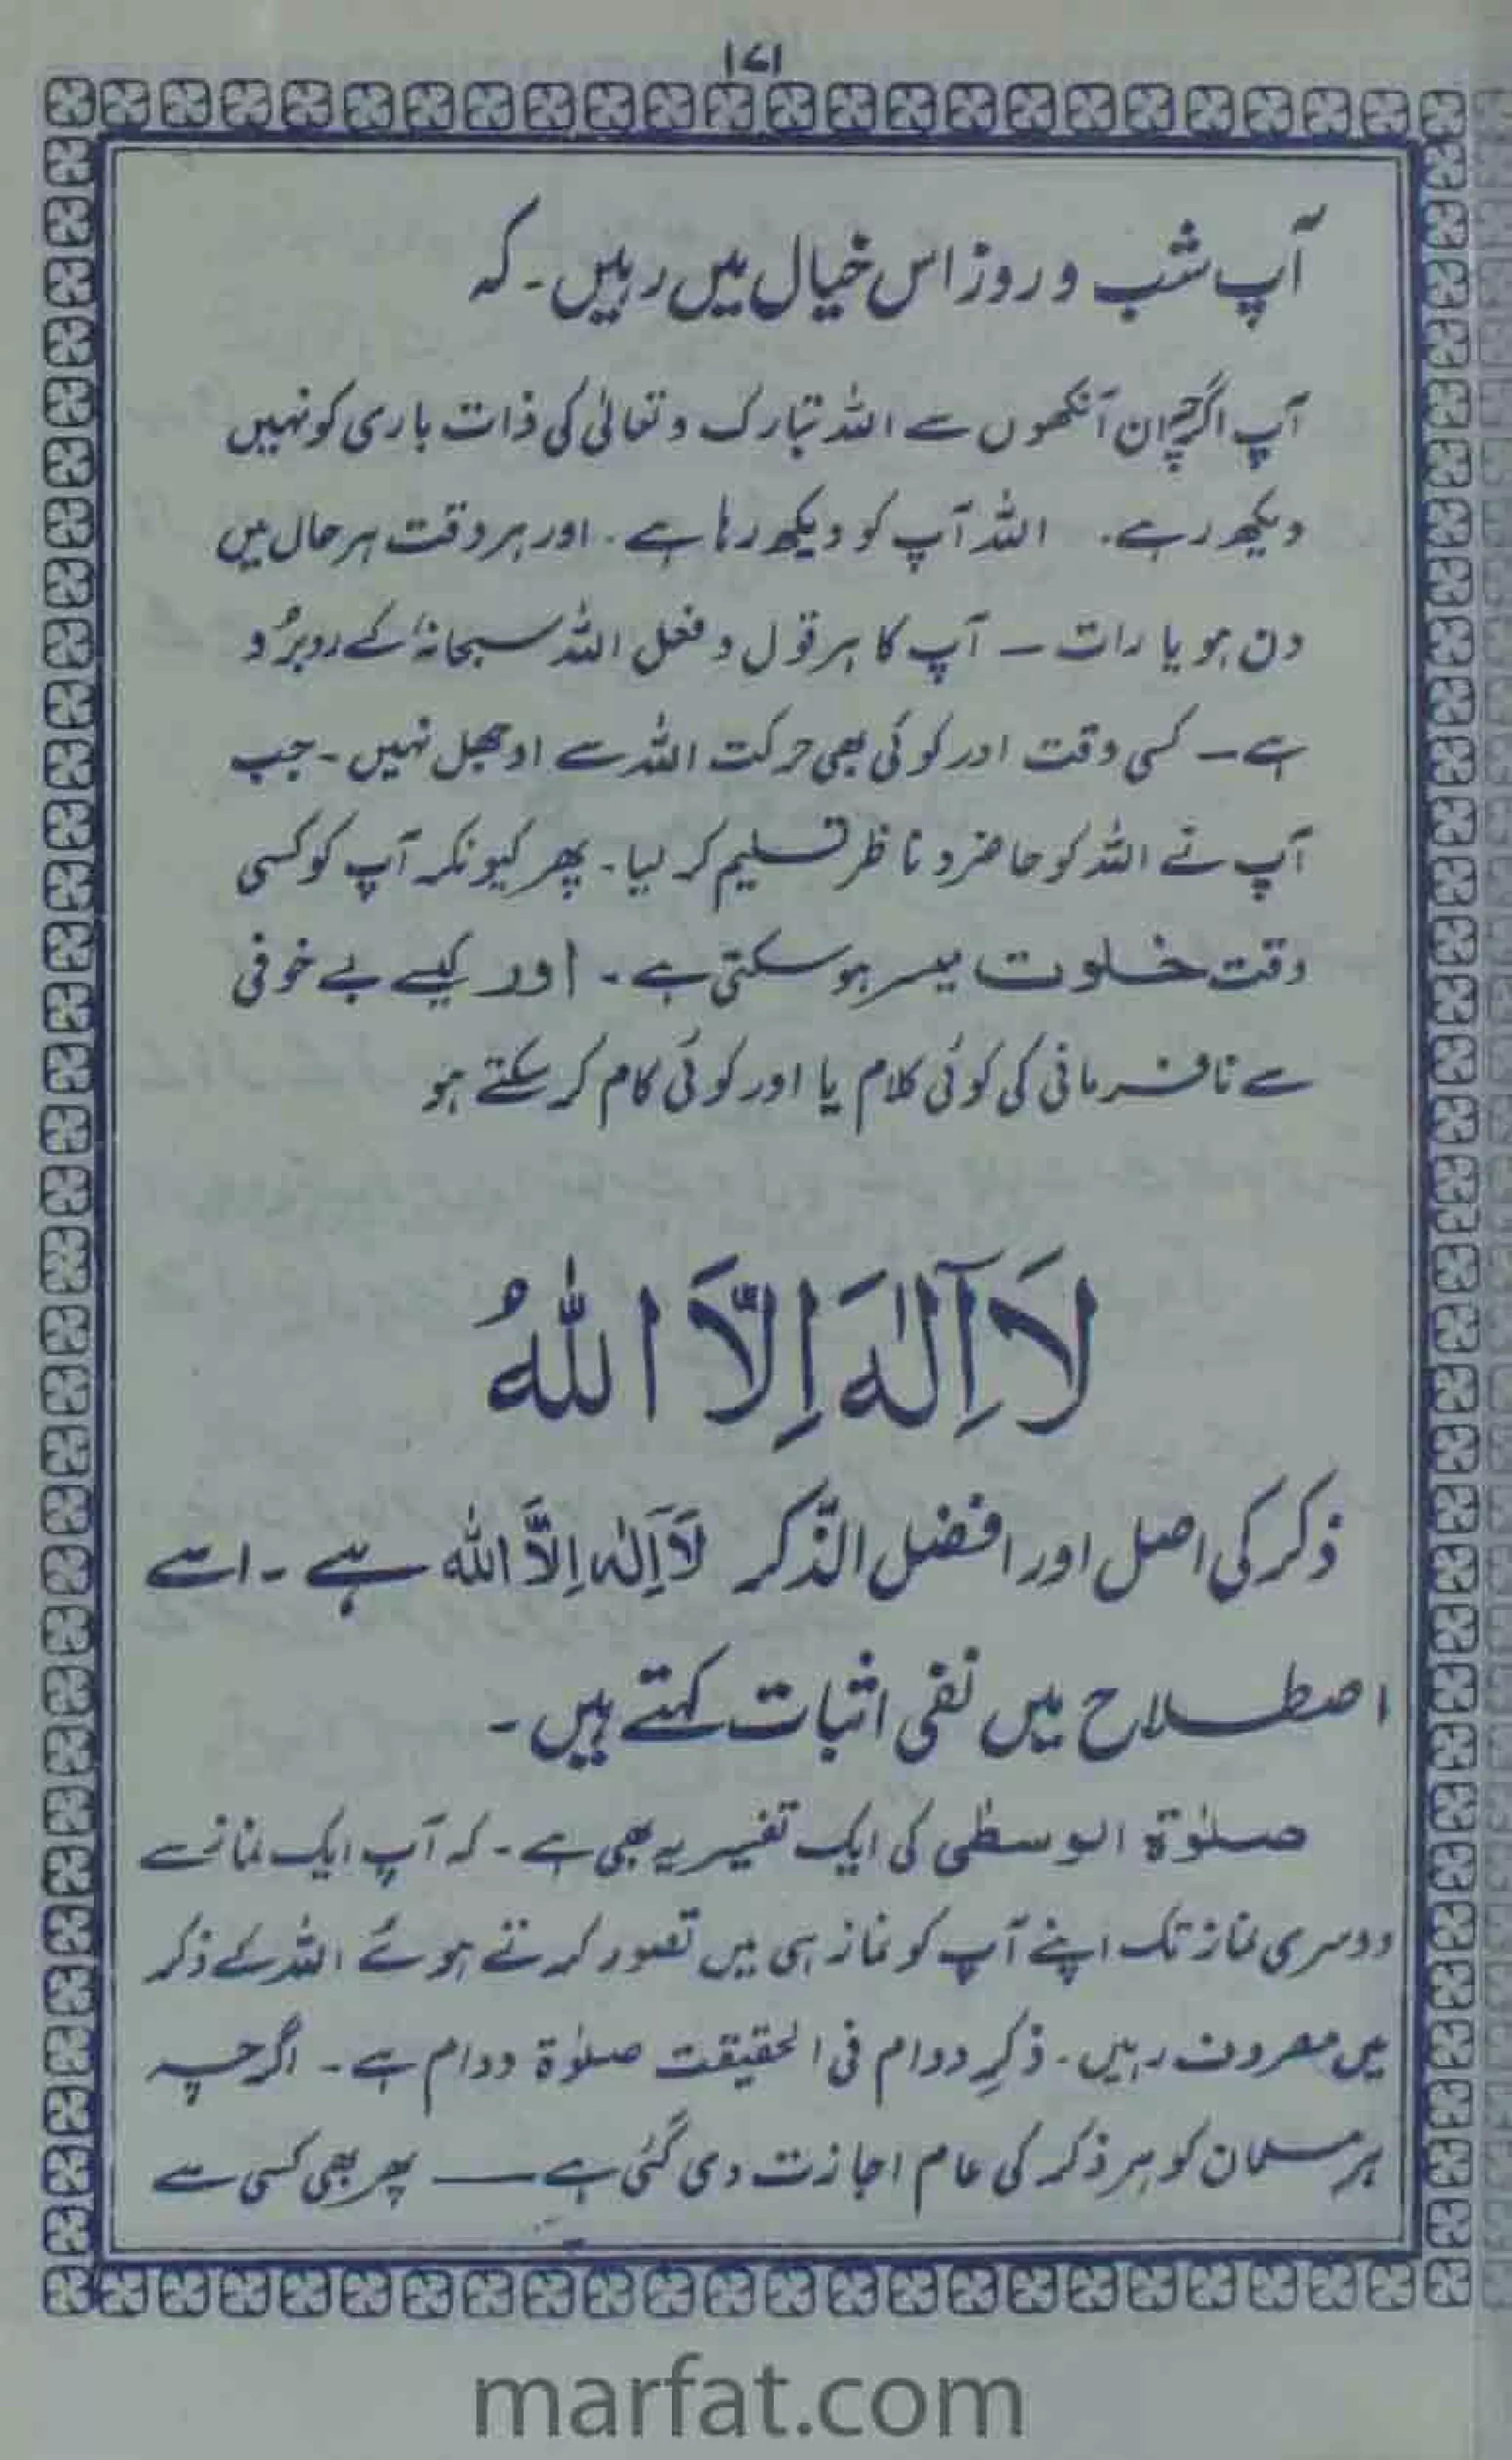 ۱۷۱
آپ شب و روز اس خیال میں رہیں۔ کہ
آپ اگرچہ ان آنکھوں سے اللہ تبارک و تعالیٰ کی ذات باری کو نہیں
دیکھ رہے۔ اللہ آپ کو دیکھ رہا ہے۔ اور ہر وقت ہر حال میں
دن ہو یا رات — آپ کا ہر قول و فعل اللہ سبحانہٗ کے روبرُو
ہے — کسی وقت اور کوئی بھی حرکت اللہ سے اوجھل نہیں۔ جب
آپ نے اللہ کو حاضر و ناظر تسلیم کر لیا۔ پھر کیونکر آپ کو کسی
وقت خلوت میسر ہو سکتی ہے۔ اور کیسے بے خوفی
سے نافرمانی کی کوئی کلام یا اور کوئی کام کر سکتے ہو
لَآ اِلٰہَ اِلَّا اللّٰہُ
ذکر کی اصل اور افضل الذّکر لَآ اِلٰہ اِلَّا اللّٰہ ہے۔ اسے
اصطلاح میں نفی اثبات کہتے ہیں۔
صلوٰۃ الوسطٰی کی ایک تفسیر یہ بھی ہے۔ کہ آپ ایک نماز سے
دوسری نماز تک اپنے آپ کو نماز ہی میں تصور کرتے ہوئے اللہ کے ذکر
میں مصروف رہیں۔ ذکرِ دوام فی الحقیقت صلوٰۃ دوام ہے۔ اگرچہ
ہر مسلمان کو ہر ذکر کی عام اجازت دی گئی ہے — پھر بھی کسی سے
marfat.com